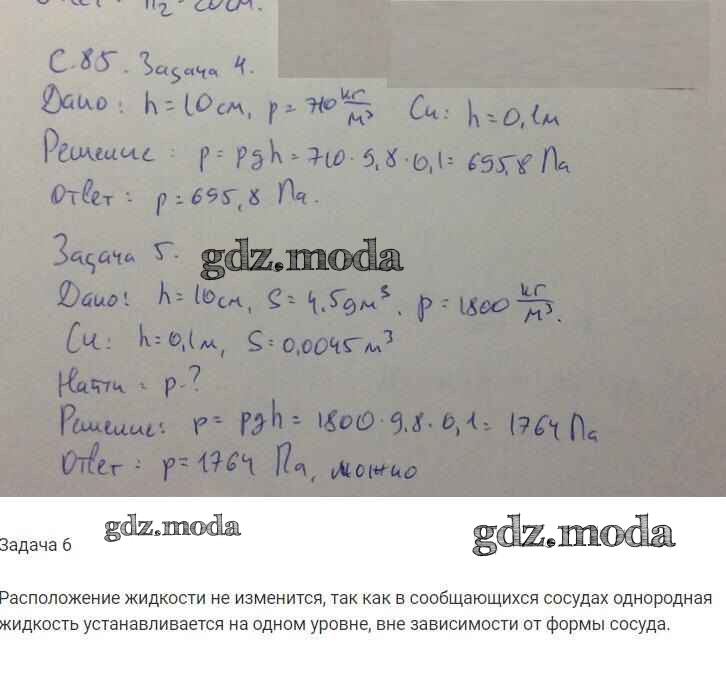 С.85. Задача 4.
Дано: h=10см, p=710 кг/м³ Си: h=0,1м
Решение: p=pgh=710·9,8·0,1=695,8 Па
Ответ: p=695,8 Па.
Задача 5.
gdz.moda
Дано: h=10см, S=4,5дм³, p=1800 кг/м³.
Си: h=0,1м, S=0,0045м³
Найти: p-?
Решение: p=pgh=1800·9,8·0,1=1764 Па
Ответ: p=1764 Па, можно
gdz.moda
gdz.moda
Задача 6
Расположение жидкости не изменится, так как в сообщающихся сосудах однородная
жидкость устанавливается на одном уровне, вне зависимости от формы сосуда.